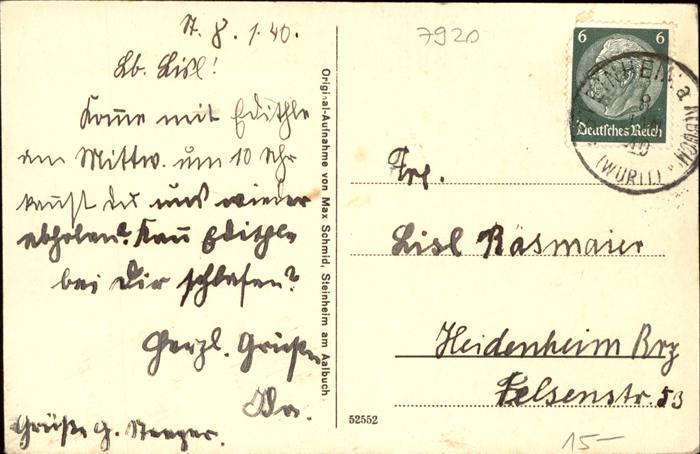 St. 8.1.40.
Lb. Lisl!
Komme mit Edithle
am Mittw. um 10 Uhr
kannst du uns wieder
abholen? Kann Edithle
bei Dir schlafen?
Herzl. Grüße
Grüße
Original-Aufnahme von Max Schmid, Steinheim am Aalbuch
52552
7920
6 6
Deutsches Reich
(WÜRTT)
Frl.
Lisl Räsmaier
Heidenheim Brz
Felsenstr. 53
15-